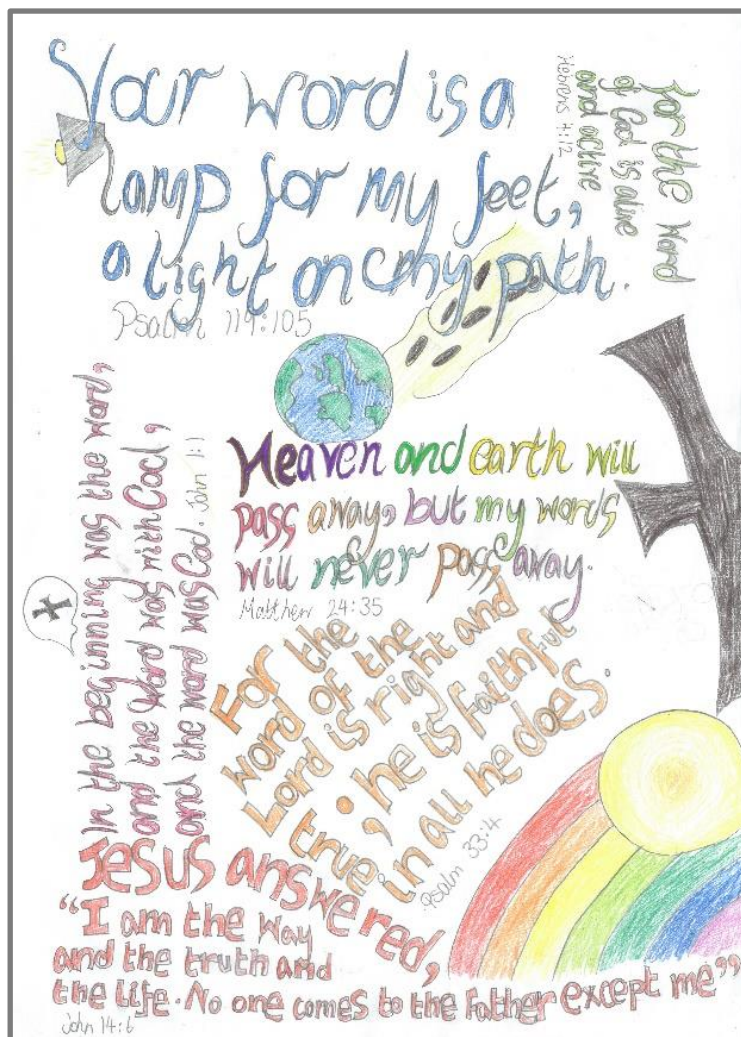 Your word is a
lamp for my feet,
a light on my path.
Psalm 119:105
for the word
of God is alive
and active
Hebrews 4:12
In the beginning was the word,
and the word was with God,
and the word was God. John 1:1
Heaven and earth will
pass away, but my words
will never pass away.
Matthew 24:35
For the
word of the
Lord is right and
true; he is faithful
in all he does.
Psalm 33:4
Jesus answered,
"I am the way
and the truth and
the life. No one comes to the Father except me"
John 14:6